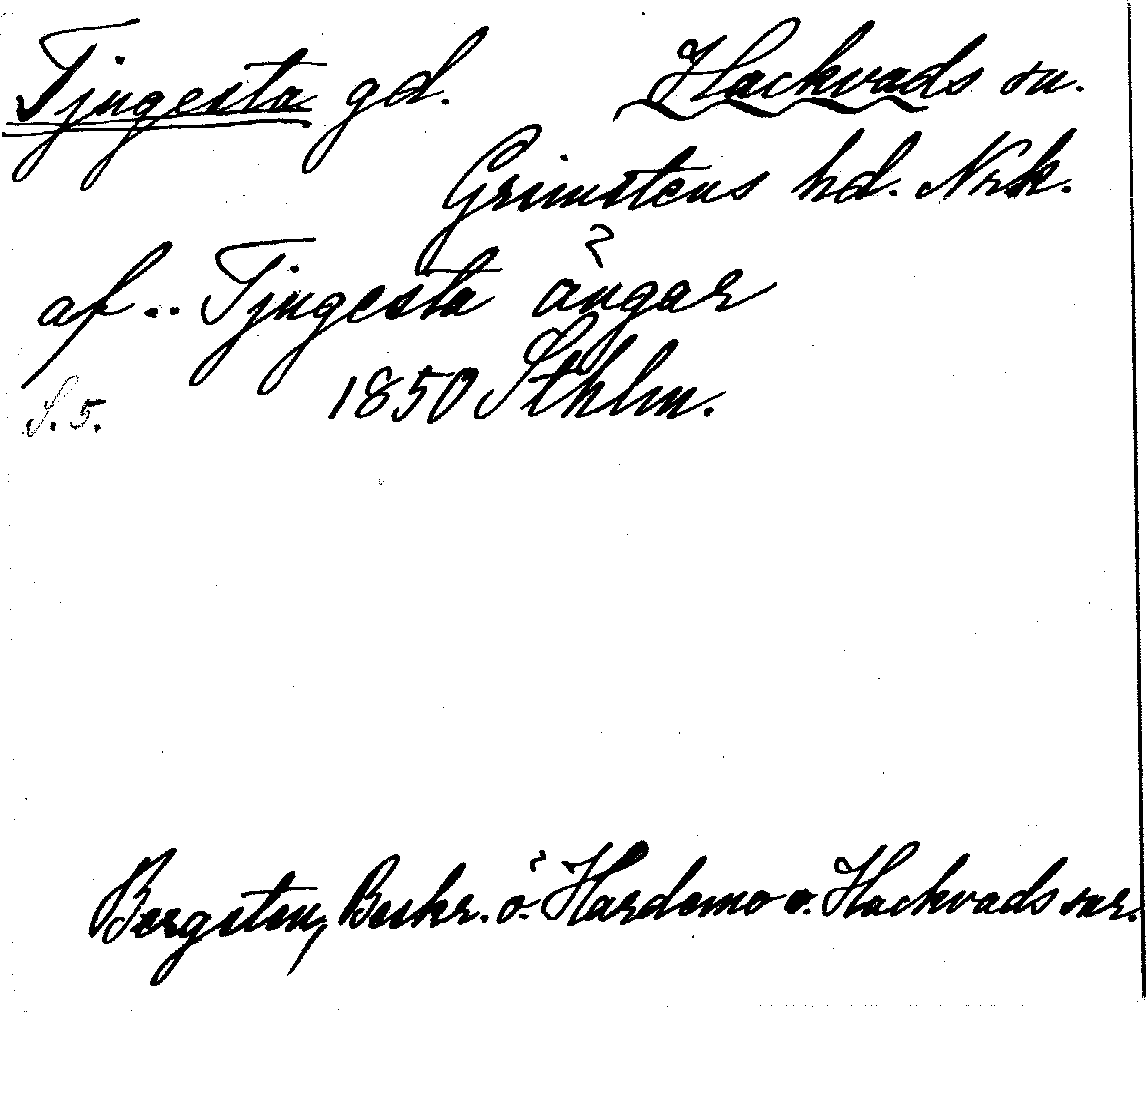 Tjugesta gd. Hackvads sn.
Grimstens hd. Nrk.
af .. Tjugesta ängar
S. 5. 1850 Sthlm.
Bergsten, Beskr. ö. Hardemo o. Hackvads snr.